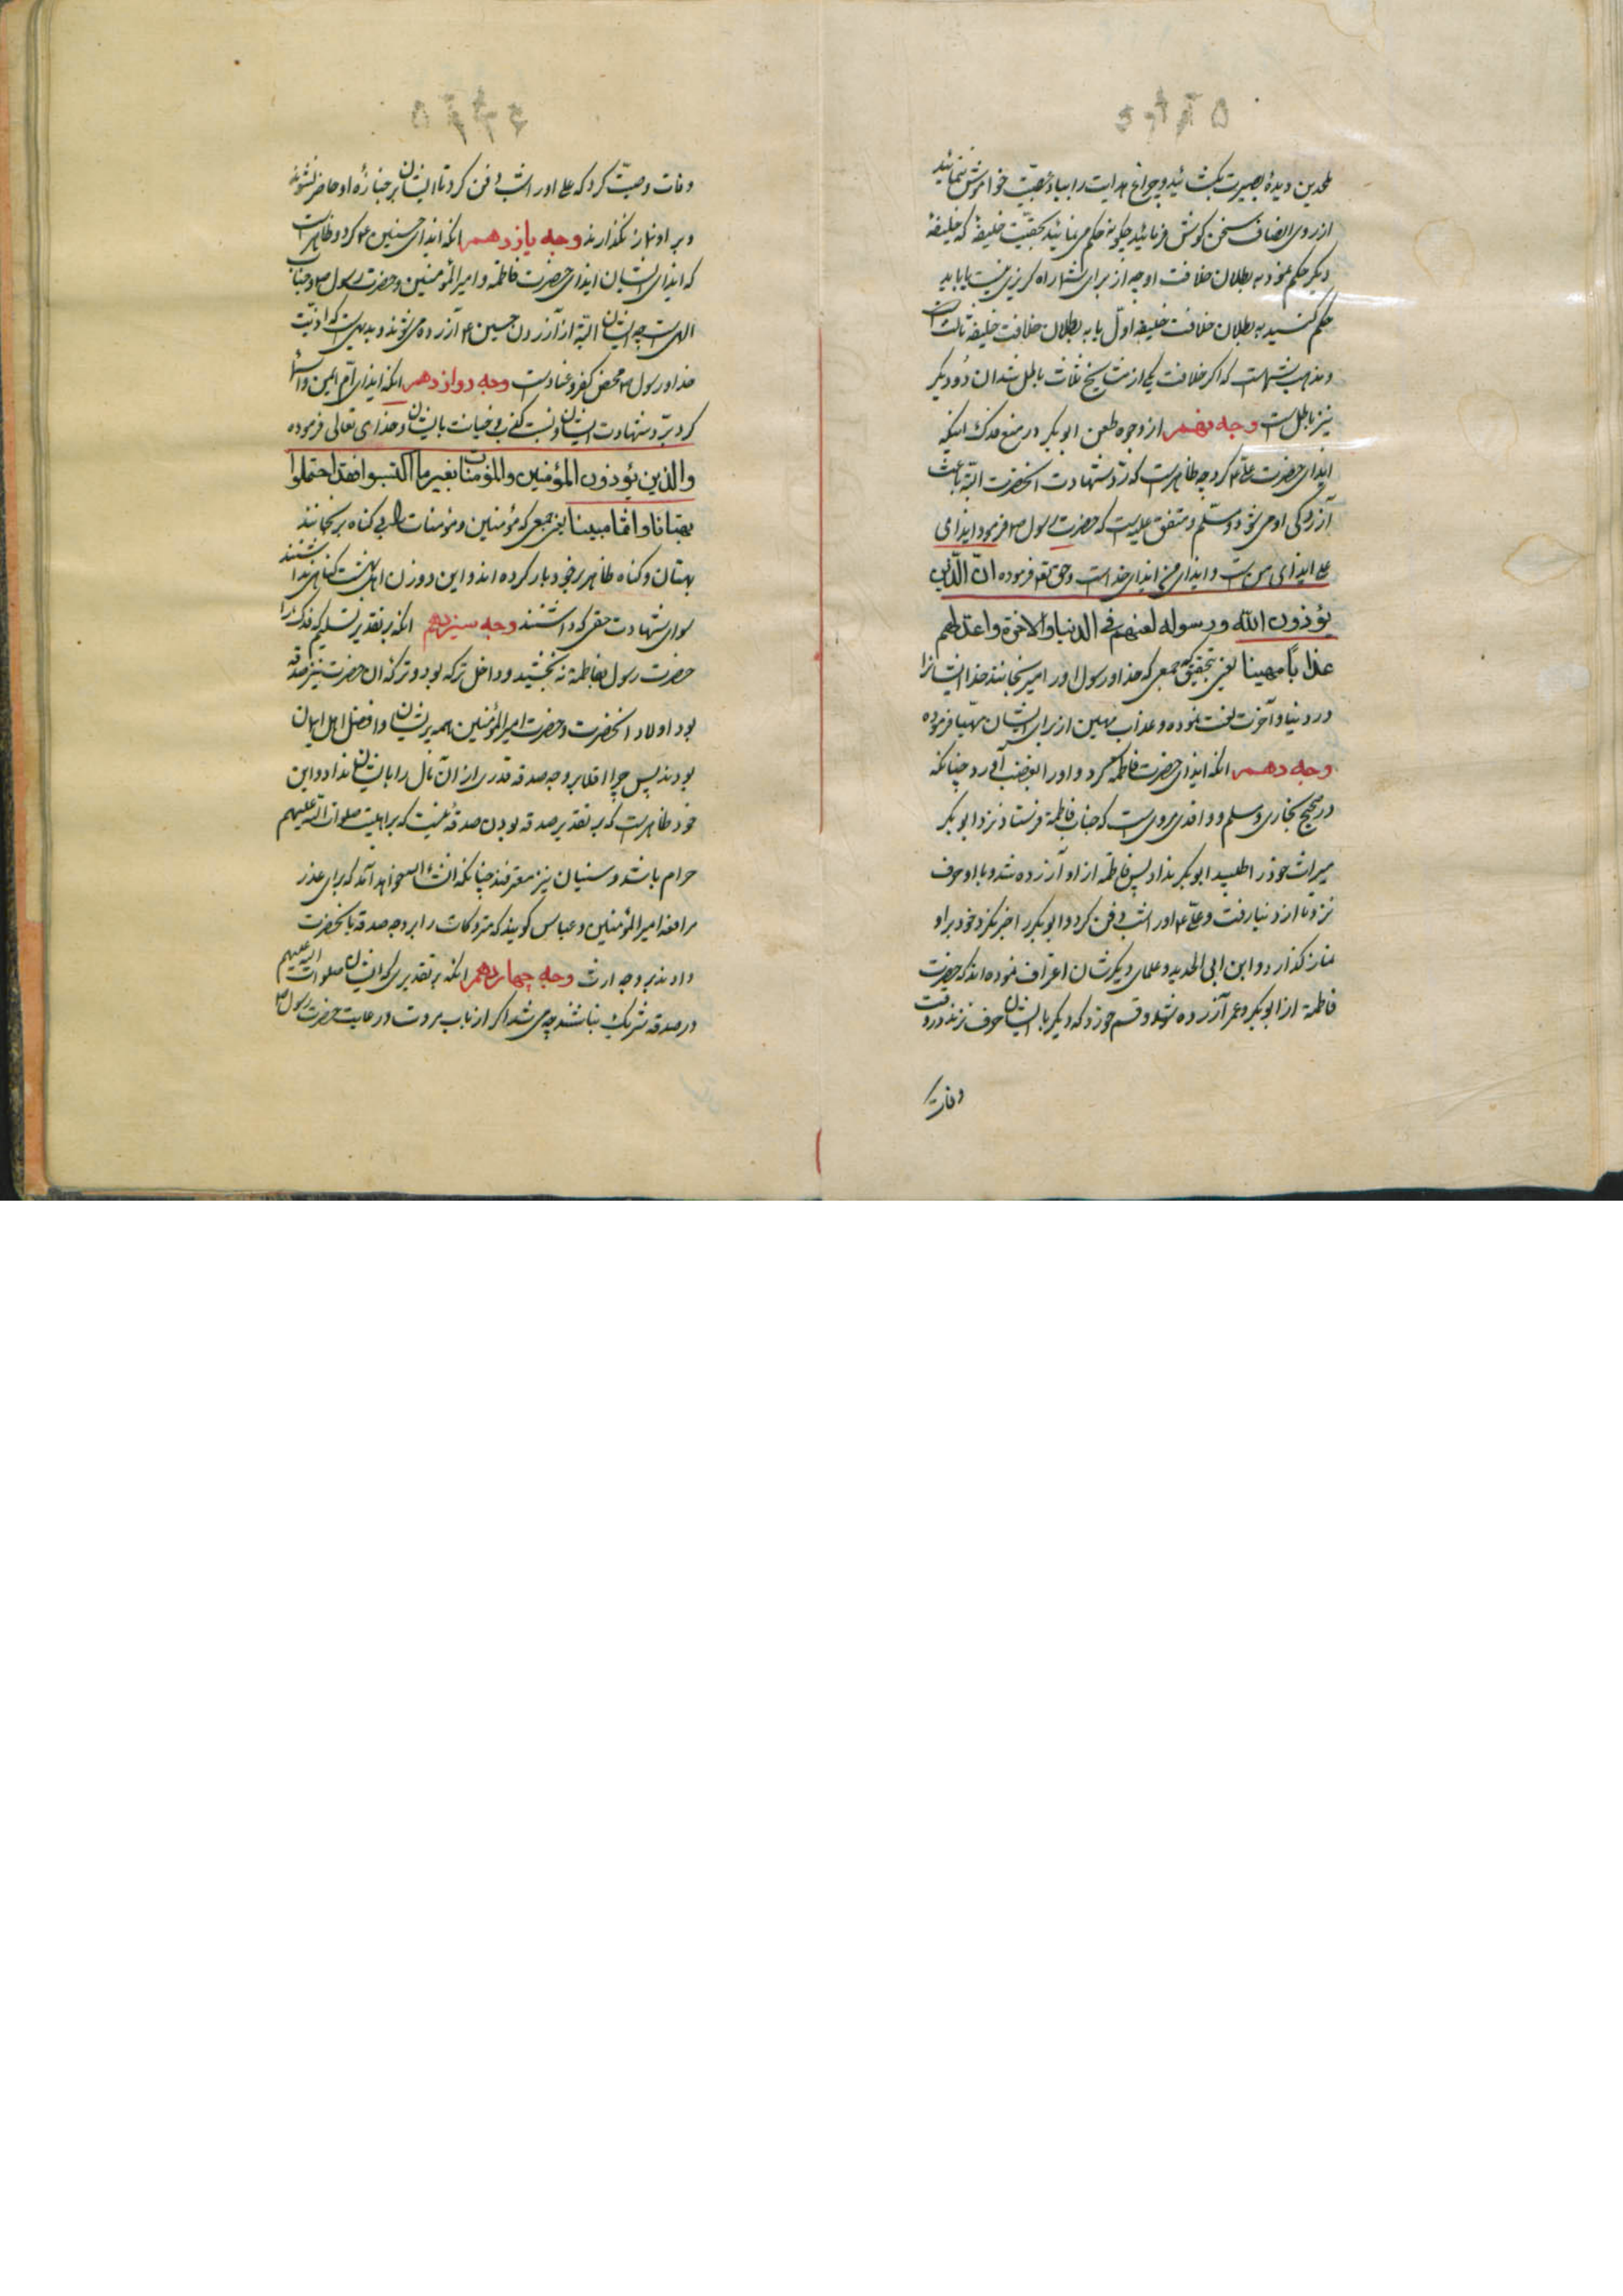 ملحدین دیدهٔ بصیرت بکشائید و چراغ هدایت را بباد عصبیّت خواموش ننمائید
از روی انصاف سخن کوش فرمائید چکونه حکم می نمائید بحقیّت خلیفهٔ که خلیفهٔ
دیکر حکم نمود به بطلان خلافت او چه از برای شما راه کریزی نیست یا باید
حکم کنید به بطلان خلافت خلیفه اوّل یا به بطلان خلافت خلیفه ثالث
و مذهب شماست که اکر خلافت یکی از مشایخ ثلاث باطل شد ان دو دیکر
نیز باطل است وجه نهم از وجوه طعن ابو بکر در منع فدک اینکه
ایذای حضرت علی ع کرد چه ظاهرست که ردّ شهادت انحضرت البته باعث
آزردکی او می شود و مسلّم و متفق علیه است که حضرت رسول ص فرمود ایذای
علی ایذای من است و ایذای من ایذای خداست و حق تع فرموده انّ الّذین
یؤذون الله و رسوله لعنهم فی الدنیا والآخرة واعدّ لهم
عذاباً مهینا یعنی بتحقیق که جمعی که خدا و رسول او را میرنجانند خدا ایشانرا
در دنیا و آخرت لعنت نموده و عذاب مهین از برای ایشان مهیّا فرموده
وجه دهم انکه ایذای حضرت فاطمه کرد و او را بغضب آورد چنانکه
در صحیح بخاری و مسلم و واقدی مروی است که جناب فاطمه فرستاد نزد ابو بکر
میراث خود را طلبید ابو بکر نداد پس فاطمه از او آزرده شد و با او حرف
نزد تا از دنیا رفت و علی ع او را شب دفن کرد و ابو بکر را خبر نکرد و خود بر او
نماز کذارد و ابن ابی الحدید و علمای دیکرشان اعتراف نموده اند که حضرت
فاطمه از ابو بکر و عمر آزرده شد و قسم خورد که دیکر با ایشان حرف نزند و در وقت
وفات
وفات وصیّت کرد که علی او را شب دفن کرد تا ایشان بر جنازه او حاضر نشوند
و بر او نماز نکذارند وجه یازدهم انکه ایذای حسنین ع کرد و ظاهر است
که ایذای ایشان ایذای حضرت فاطمه و امیر المؤمنین و حضرت رسول ص و جناب
الهی است چه ایشان البته از آزردن حسنین ع آزرده می شوند و بدیهی است که اذیّت
خدا و رسول ص محض کفر و عنادست وجه دوازدهم انکه ایذای امّ ایمن و اسما
کرد بردّ شهادت ایشان و نسبت کذب و خیانت بایشان و خدای تعالی فرموده
والذین یؤذون المؤمنین والمؤمنات بغیر ما اکتسبوا فقد احتملوا
بهتانا واثما مبینا یعنی جمعی که مؤمنین و مؤمنات را بی کناه برنجانند
بهتان و کناه ظاهر بر خود بار کرده اند و این دو زن اهل بهشت کناهی نداشتند
سوای شهادت حقی که داشتند وجه سیزدهم انکه بر تقدیر تسلیم که فدک را
حضرت رسول بفاطمه نه بخشید و داخل ترکه بود و ترکه ان حضرت نیز صدقه
بود اولاد انحضرت و حضرت امیر المؤمنین همه پریشان و افضل اهل ایمان
بودند پس چرا اقلا بر وجه صدقه قدری از ان مال را بایشان نداد و این
خود ظاهرست که بر تقدیر صدقه بودن صدقهٔ نیست که بر اهلبیت صلوات الله علیهم
حرام باشد و سنیان نیز معترفند چنانکه انشاء الله خواهد آمد که برای عذر
مرافعه امیر المؤمنین و عباس کویند که متروکات را بر وجه صدقه بانحضرت
دادند نه بر وجه ارث وجه چهاردهم انکه بر تقدیری که ایشان صلوات الله علیهم
در صدقه شریک نباشند چه می شد اکر از باب مروت و رعایت حضرت رسول ص